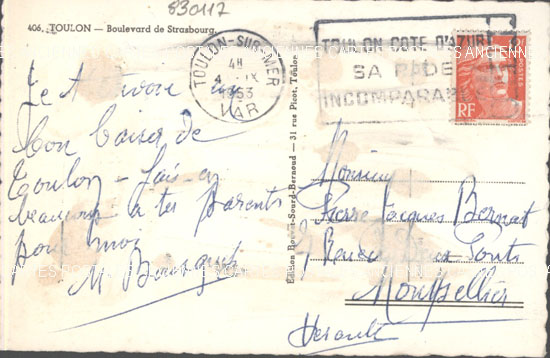 830117
406. TOULON — Boulevard de Strasbourg.
TOULON-SUR-MER
4 - IX
53
VAR
TOULON COTE D'AZUR
SA RADE
INCOMPARABLE
POSTES
RF
Je t'envoie un
bon baiser de
Toulon - fais en
beaucoup à tes parents
pour moi
M. Bourgues
Edition Bernaud — 31 rue Picot, Toulon
Monsieur
Pierre Jacques Bernat
Pont
Montpellier
Herault
CARTES POSTALES ANCIENNES